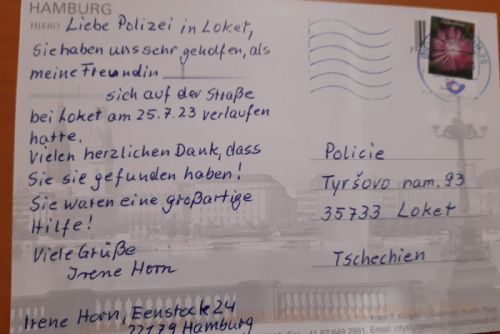 HAMBURG
HH463
Liebe Polizei in Loket,
Sie haben uns sehr geholfen, als
meine Freundin
sich auf der Straße
bei Loket am 25.7.23 verlaufen
hatte.
Vielen herzlichen Dank, dass
Sie sie gefunden haben!
Sie waren eine großartige
Hilfe!
Viele Grüße
Irene Horn
Irene Horn, Eenstock 24
22179 Hamburg
Policie
Tyršovo nam. 93
35733 Loket
Tschechien